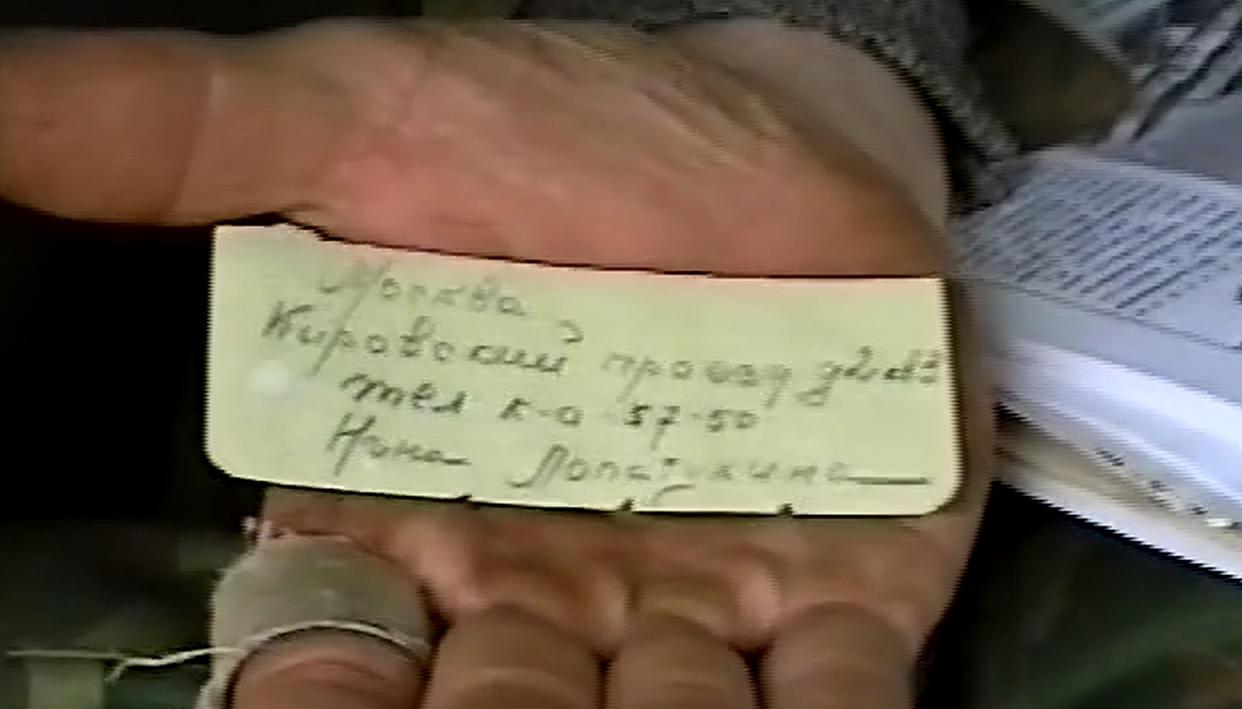 Москва
Кировский проезд д 2 кв 3
тел К-0 57-50
Нина Лопатухина